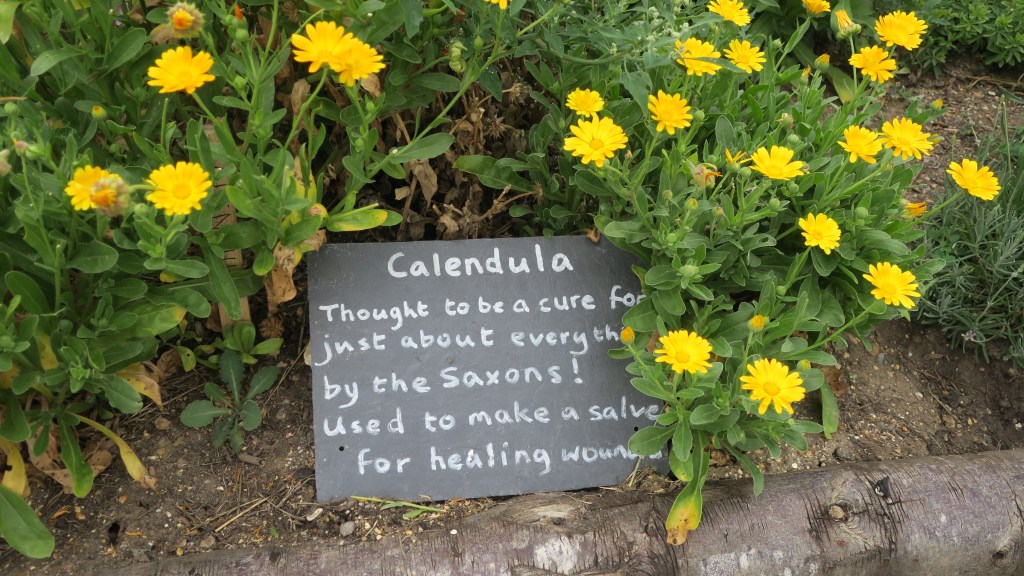 Calendula
Thought to be a cure for
just about everyth
by the Saxons!
Used to make a salve
for healing wound